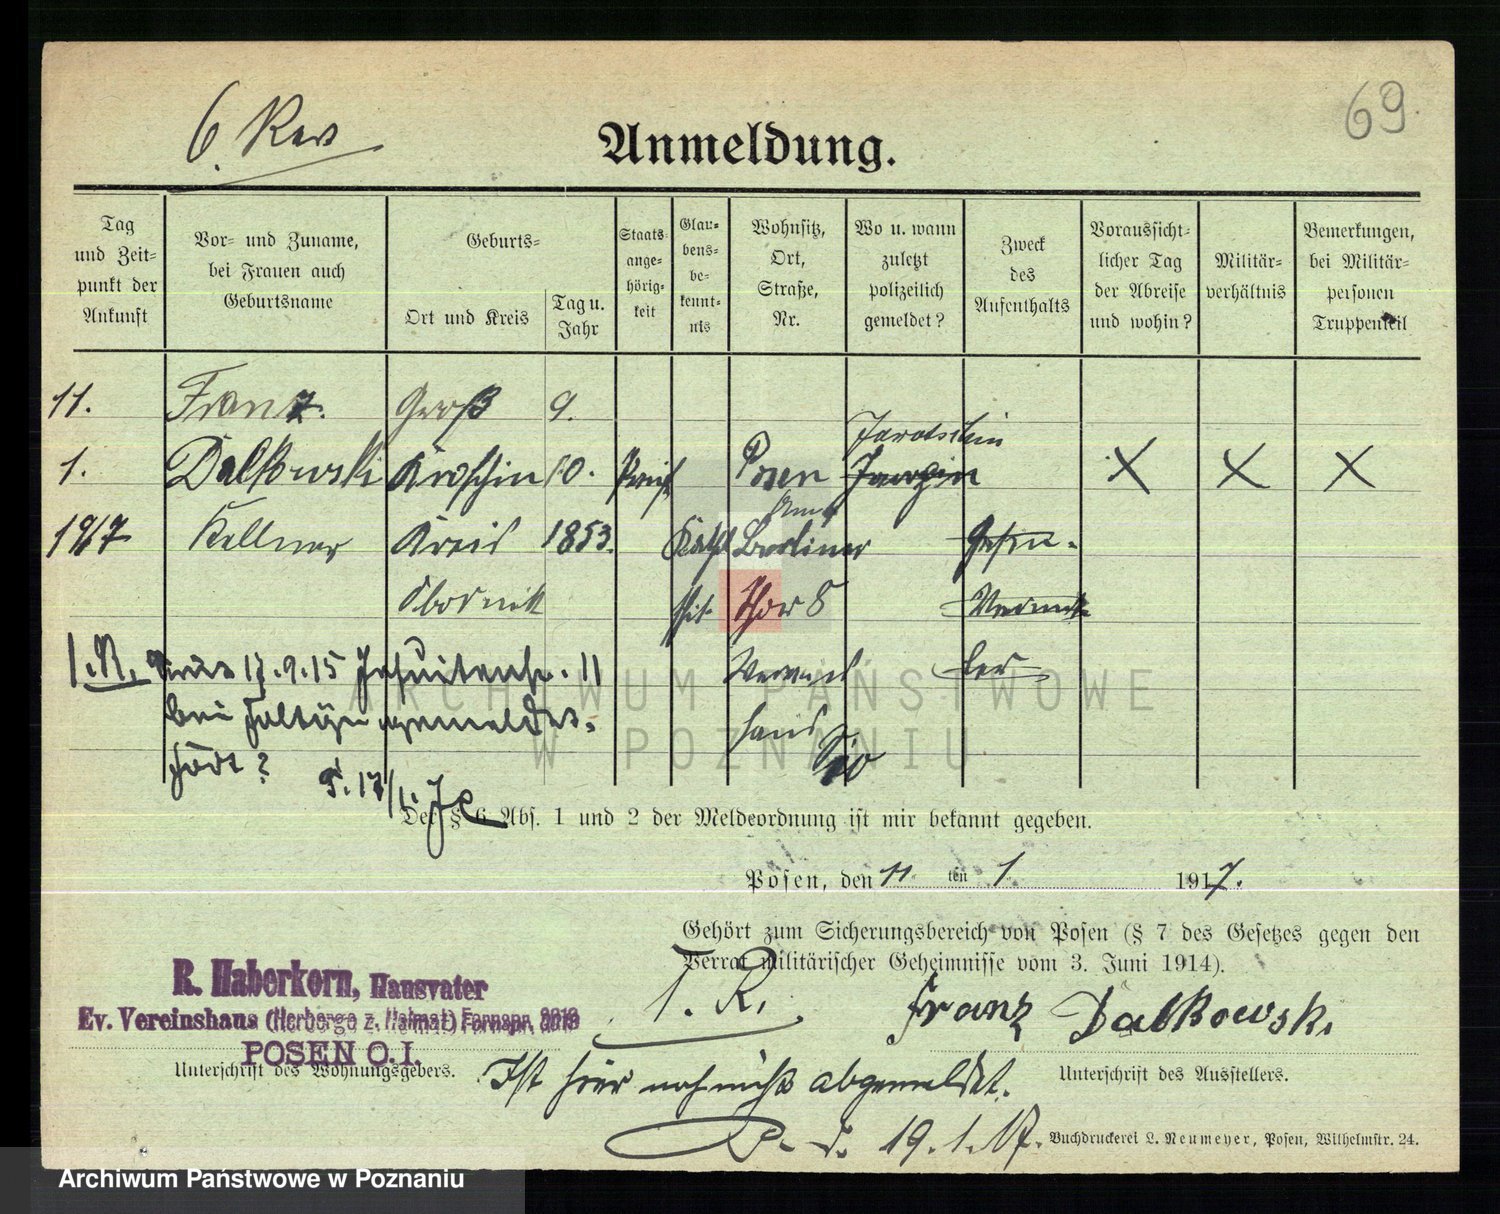 6. Rev
69.
Anmeldung.
Tag
und Zeit-
punkt der
Ankunft
Vor- und Zuname,
bei Frauen auch
Geburtsname
Geburts-
Ort und Kreis
Tag u.
Jahr
Staats-
ange-
hörig-
keit
Glau-
bens-
be-
kennt-
nis
Wohnsitz,
Ort,
Straße,
Nr.
Wo u. wann
zuletzt
polizeilich
gemeldet?
Zweck
des
Aufenthalts
Voraussicht-
licher Tag
der Abreise
und wohin?
Militär-
verhältnis
Bemerkungen,
bei Militär-
personen
Truppenteil
11. Franz Groß 9.
Jarotschin
1. Dalkowski Kroschin 10. Preuß Posen X X X
1917 Kellner Kreis 1853. Kath Berliner
Obornik Thor 8
Vereins
haus
I. R. 17.9.15 Jesuitenstr. 11
bei gemeldet.
fort?
P. 17/1.
Der § 6 Abs. 1 und 2 der Meldeordnung ist mir bekannt gegeben.
Posen, den 11. ten 1. 1917.
Gehört zum Sicherungsbereich von Posen (§ 7 des Gesetzes gegen den
Verrat militärischer Geheimnisse vom 3. Juni 1914).
R. Haberkorn, Hausvater
Ev. Vereinshaus (Herberge z. Heimat) Fernspr.
POSEN O.I.
Unterschrift des Wohnungsgebers.
I. R.
Franz Dalkowski
Unterschrift des Ausstellers.
Ist hier noch nicht abgemeldet.
19.1.17.
Buchdruckerei L. Neumeyer, Posen, Wilhelmstr. 24.
ARCHIWUM PAŃSTWOWE
W POZNANIU
Archiwum Państwowe w Poznaniu